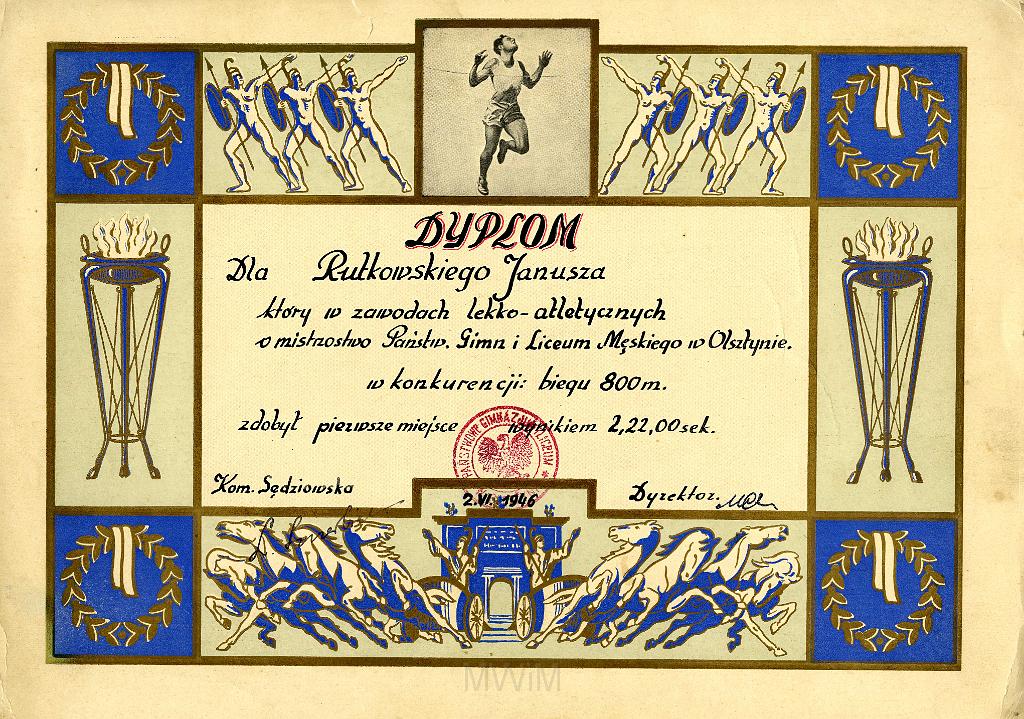 DYPLOM
Dla Rutkowskiego Janusza
który w zawodach lekko-atletycznych
o mistrzostwo Państw. Gimn i Liceum Męskiego w Olsztynie.
w konkurencji: biegu 800m.
zdobył pierwsze miejsce wynikiem 2,22,00 sek.
PAŃSTWOWE GIMNAZJUM I LICEUM
Kom. Sędziowska
Dyrektor.
2.VI.1946
MWiM